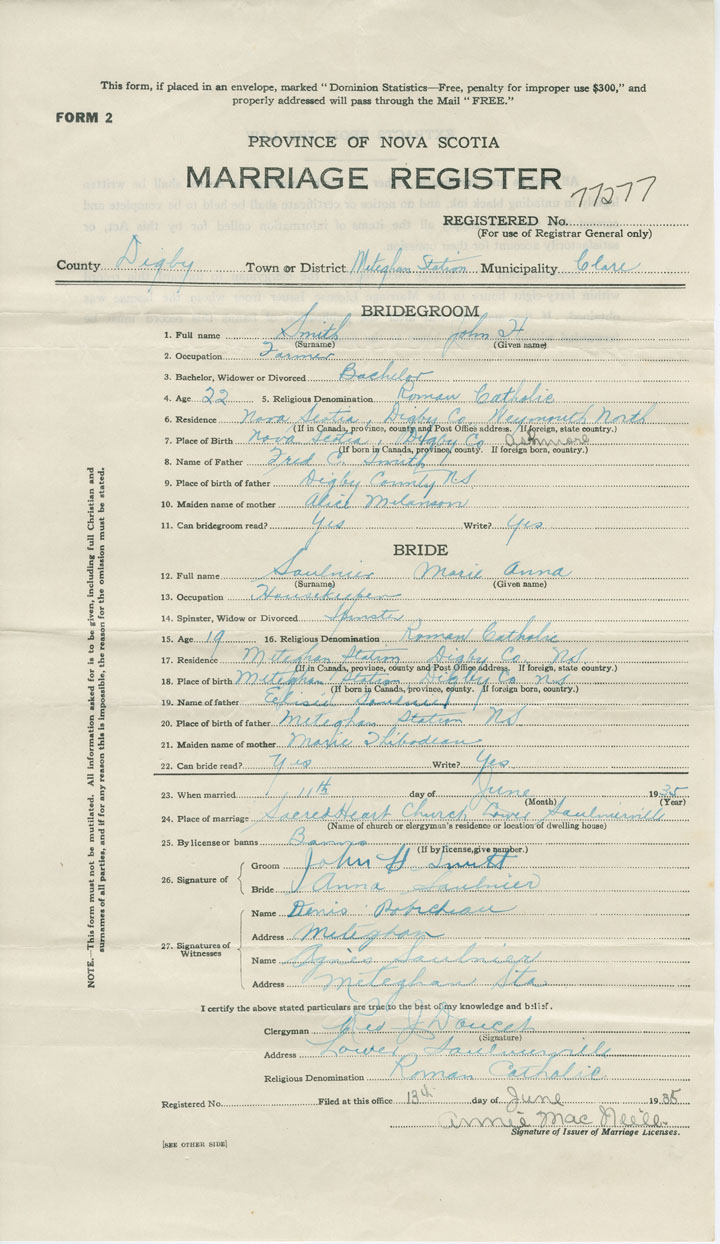 This form, if placed in an envelope, marked "Dominion Statistics—Free, penalty for improper use $300," and
properly addressed will pass through the Mail "FREE."
FORM 2
PROVINCE OF NOVA SCOTIA
MARRIAGE REGISTER
REGISTERED No. 77277
(For use of Registrar General only)
County Digby Town or District Meteghan Station Municipality Clare
BRIDEGROOM
1. Full name Smith John H
(Surname) (Given name)
2. Occupation Farmer
3. Bachelor, Widower or Divorced Bachelor
4. Age 22 5. Religious Denomination Roman Catholic
6. Residence Nova Scotia, Digby Co Weymouth North
(If in Canada, province, county and Post Office address. If foreign, state country.)
7. Place of Birth Nova Scotia, Digby Co Ashmore
(If born in Canada, province, county. If foreign born, country.)
8. Name of Father Fred C. Smith
9. Place of birth of father Digby County NS
10. Maiden name of mother Alice Melanson
11. Can bridegroom read? Yes Write? Yes
BRIDE
12. Full name Saulnier Marie Anna
(Surname) (Given name)
13. Occupation Housekeeper
14. Spinster, Widow or Divorced Spinster
15. Age 19 16. Religious Denomination Roman Catholic
17. Residence Meteghan Station Digby Co. N.S.
(If in Canada, province, county and Post Office address. If foreign, state country.)
18. Place of birth Meteghan Station Digby Co N.S
(If born in Canada, province, county. If foreign born, country.)
19. Name of father Saulnier
20. Place of birth of father Meteghan Station NS
21. Maiden name of mother Marie Thibodeau
22. Can bride read? Yes Write? Yes
23. When married 11th day of June 1935
(Month) (Year)
24. Place of marriage Sacred Heart Church, Lower Saulnierville
(Name of church or clergyman's residence or location of dwelling house)
25. By license or banns Banns
(If by license, give number.)
26. Signature of
Groom John H Smith
Bride Anna Saulnier
27. Signatures of Witnesses
Name Denis Robicheau
Address Meteghan
Name Agnes Saulnier
Address Meteghan Sta
I certify the above stated particulars are true to the best of my knowledge and belief.
Clergyman J Doucet
(Signature)
Address Lower Saulnierville
Religious Denomination Roman Catholic
Registered No. Filed at this office 13th day of June 1935
Annie Mac Neill
Signature of Issuer of Marriage Licenses.
[SEE OTHER SIDE]
NOTE.—This form must not be mutilated. All information asked for is to be given, including full Christian and
surnames of all parties, and if for any reason this is impossible, the reason for the omission must be stated.